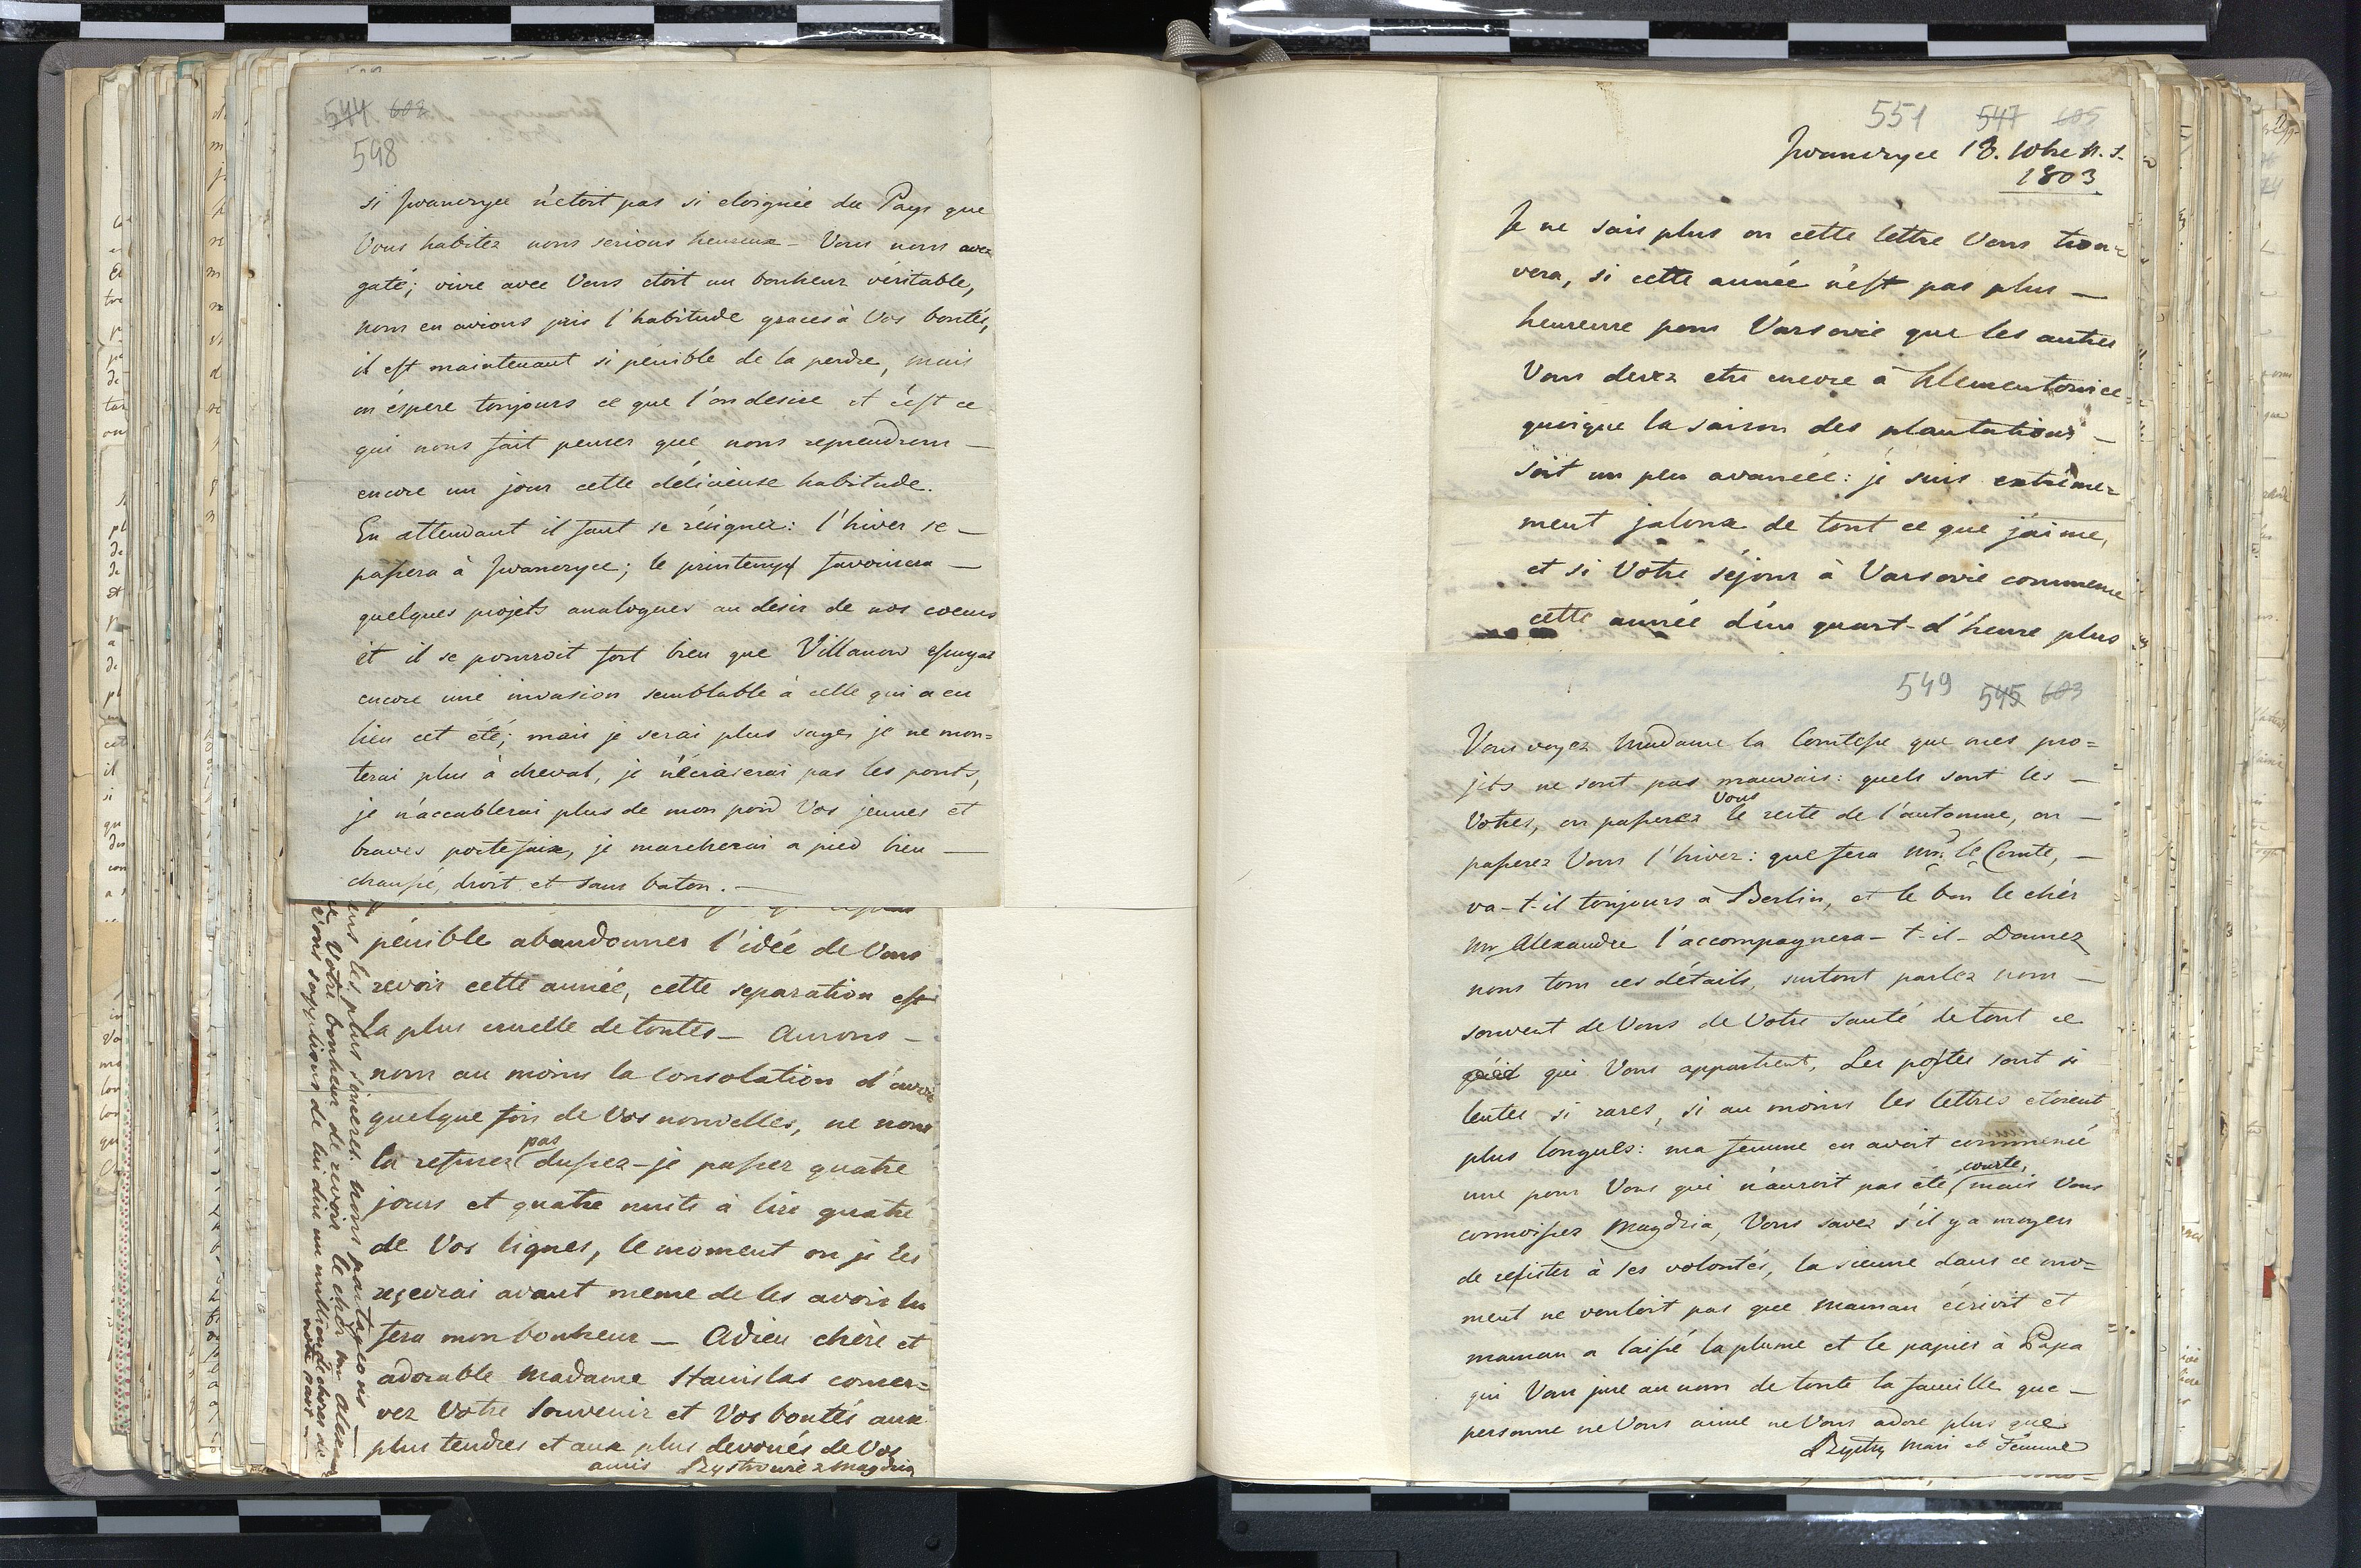 544 602
598
si Jwanczyce n'étoit pas si eloignée du Pays que
Vous habitez nous serions heureux – Vous nous avez
gaté; vivre avec Vous etoit un bonheur véritable,
nous en avions pris l'habitude graces à Vos bontés,
il est maintenant si pénible de la perdre, mais
on éspere toujours ce que l'on desire et c'est ce
qui nous fait penser que nous reprendrons —
encore un jour cette délicieuse habitude.
En attendant il faut se résigner: l'hiver se —
passera à Jwanczyce; le printemps favorisera —
quelques projets analogues au desir de nos coeurs
et il se pourroit fort bien que Villanow essuyat
encore une invasion semblable à celle qui a eu
lieu cet été; mais je serai plus sage, je ne mon=
terai plus à cheval, je n'écraserai pas les ponts,
je n'accablerai plus de mon poid Vos jeunes et
braves portefaix, je marcherai a pied bien —
chaussé, droit et sans baton. —
pénible abandonner l'idée de Vous
revoir cette année, cette separation est
la plus cruelle de toutes — Aurons —
nous au moins la consolation d'avoir
quelque fois de Vos nouvelles, ne nous
la refusez pas dussez-je passer quatre
jours et quatre nuits à lire quatre
de Vos lignes, le moment ou je les
reçevrai avant meme de les avoir lu
fera mon bonheur — Adieu chère et
adorable Madame Stanislas conser=
vez Votre souvenir et Vos bontés aux
plus tendres et aux plus devoués de Vos
amis Bystrowie z Magdzią
les plus sinceres. nous partageons —
Votre bonheur de revoir le cher Mr Alexan
Vous supplions de lui dire un million de choses de
notre part —
551 547 605
Jwanczyce 18. 10bre n. s.
1803
Je ne sais plus ou cette lettre Vous trou=
vera, si cette année n'est pas plus —
heureuse pour Varsovie que les autres
Vous devez etre encore à Klementowice
quoique la saison des plantations —
soit un peu avancée: je suis extrême=
ment jaloux de tout ce que j'aime,
et si Votre séjour à Varsovie commence
cette année d'un quart-d'heure plus
549 545 603
Vous voyez Madame la Comtesse que mes pro=
jets ne sont pas mauvais: quels sont les —
Votres, ou passerez Vous le reste de l'automne, ou —
passerez Vous l'hiver: que fera Mr. le Comte, —
va-t-il toujours à Berlin, et le bon le chér
Mr Alexandre l'accompagnera-t-il – Donnez
nous tous ces détails, surtout parlez nous —
souvent de Vous de Votre santé de tout ce
qui Vous appartient. Les postes sont si
lentes si rares, si au moins les lettres etoient
plus longues: ma femme en avoit commencé
une pour Vous qui n'auroit pas été courte, mais Vous
connoissez Magdzia, Vous savez s'il y a moyen
de resister à ses volontés, la sienne dans ce mo=
ment ne vouloit pas que Maman écrivit et
maman a laissé la plume et le papier à Papa
qui Vous jure au nom de toute la famille que —
personne ne Vous aime ne Vous adore plus que
Bystry Mari et Femme